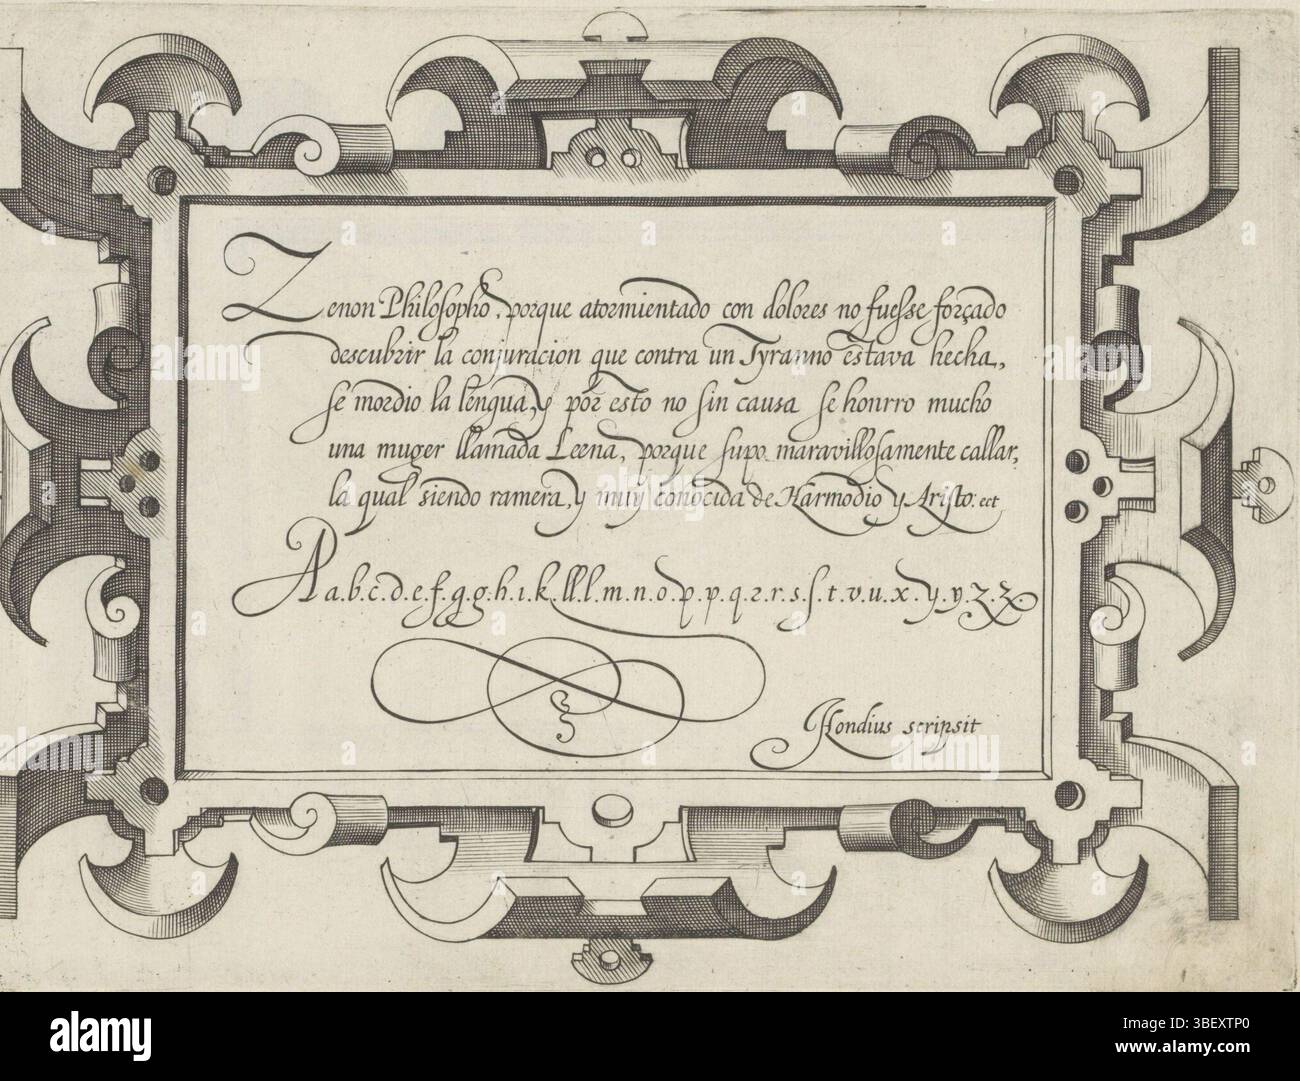 Zenon Philosopho, porque atormientado con dolores no fuesse forçado
descubrir la conjuracion que contra un Tyranno estava hecha,
se mordio la lengua, y por esto no sin causa se honrro mucho
una muger llamada Leena, porque supo maravillosamente callar,
la qual siendo ramera, y muy conocida de Harmodio y Aristo: ect
A a.b.c.d.e.f.g.g.h.ı.k.ll.l.m.n.o.p.p.q.2.r.s.ſ.t.v.u.x.y.y.z.z
Hondius scripsit
alamy
Image ID: 3BEXTP0
www.alamy.com